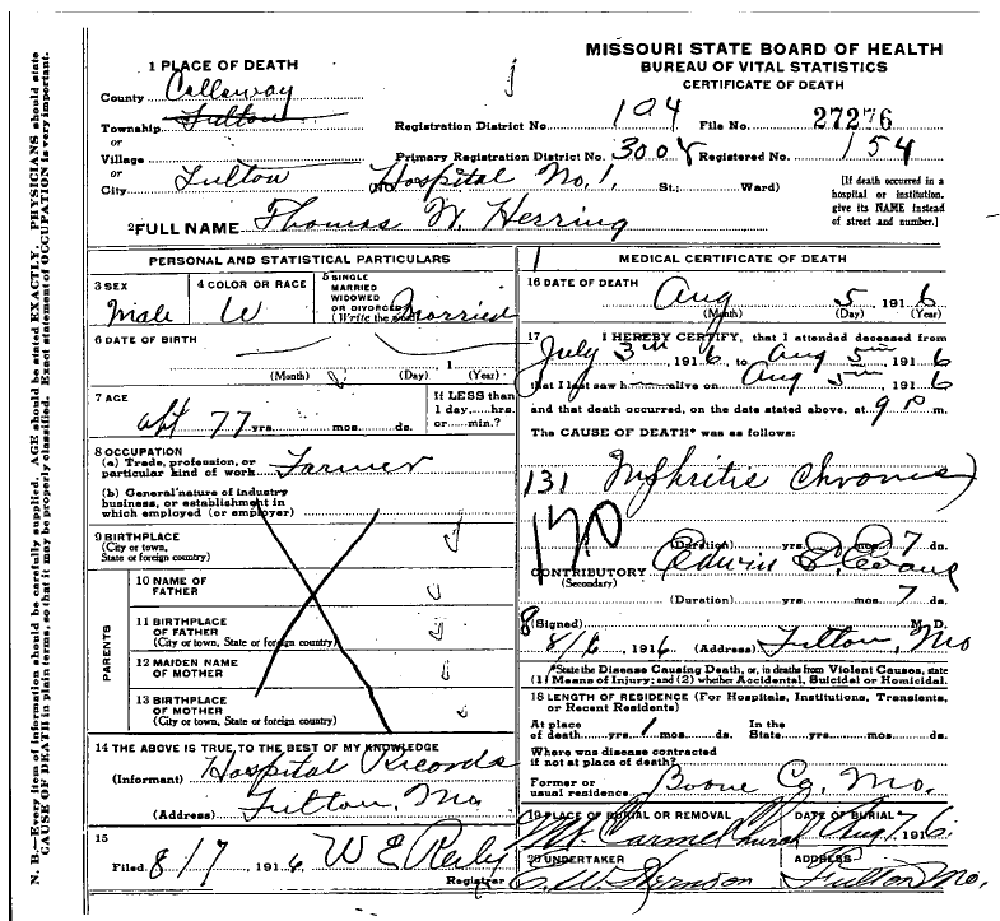 MISSOURI STATE BOARD OF HEALTH
BUREAU OF VITAL STATISTICS
CERTIFICATE OF DEATH
1 PLACE OF DEATH
County Callaway
Township Fulton
or
Village
or
City Fulton
Registration District No. 104 File No. 27276
Primary Registration District No. 3008 Registered No. 154
(No. Hospital No. 1. St.; Ward)
[If death occurred in a
hospital or institution,
give its NAME instead
of street and number.]
2 FULL NAME Thomas W. Herring
PERSONAL AND STATISTICAL PARTICULARS
3 SEX
Male
4 COLOR OR RACE
W
5 SINGLE
MARRIED
WIDOWED
OR DIVORCED
(Write the word) Married
6 DATE OF BIRTH
, 1
(Month) (Day) (Year)
7 AGE
77 yrs. mos. ds.
If LESS than
1 day, hrs.
or min.?
8 OCCUPATION
(a) Trade, profession, or
particular kind of work Farmer
(b) General nature of industry
business, or establishment in
which employed (or employer)
9 BIRTHPLACE
(City or town,
State or foreign country)
PARENTS
10 NAME OF
FATHER
11 BIRTHPLACE
OF FATHER
(City or town, State or foreign country)
12 MAIDEN NAME
OF MOTHER
13 BIRTHPLACE
OF MOTHER
(City or town, State or foreign country)
14 THE ABOVE IS TRUE TO THE BEST OF MY KNOWLEDGE
(Informant) Hospital Records
(Address) Fulton, Mo
15
Filed 8/7, 1916 W E
Registrar
MEDICAL CERTIFICATE OF DEATH
16 DATE OF DEATH
Aug 5, 1916
(Month) (Day) (Year)
17 I HEREBY CERTIFY, that I attended deceased from
July 3, 1916, to Aug 5, 1916
that I last saw him alive on Aug 5, 1916
and that death occurred, on the date stated above, at 9 P m.
The CAUSE OF DEATH* was as follows:
131 Nephritis Chronic
170
(Duration) yrs. mos. 7 ds.
CONTRIBUTORY
(Secondary)
Edwin
(Duration) yrs. mos. 7 ds.
(Signed) M. D.
8/6, 1916 (Address) Fulton, Mo
*State the Disease Causing Death, or, in deaths from Violent Causes, state
(1) Means of Injury; and (2) whether Accidental, Suicidal or Homicidal.
18 LENGTH OF RESIDENCE (For Hospitals, Institutions, Transients,
or Recent Residents)
At place
of death yrs. 1 mos. ds.
In the
State yrs. mos. ds.
Where was disease contracted
if not at place of death?
Former or
usual residence Boone Co, Mo.
19 PLACE OF BURIAL OR REMOVAL
Mt. Carmel Church
DATE OF BURIAL
Aug 7 1916
20 UNDERTAKER
C. W. Herndon
ADDRESS
Fulton Mo.
N. B.—Every item of information should be carefully supplied. AGE should be stated EXACTLY. PHYSICIANS should state
CAUSE OF DEATH in plain terms, so that it may be properly classified. Exact statement of OCCUPATION is very important.